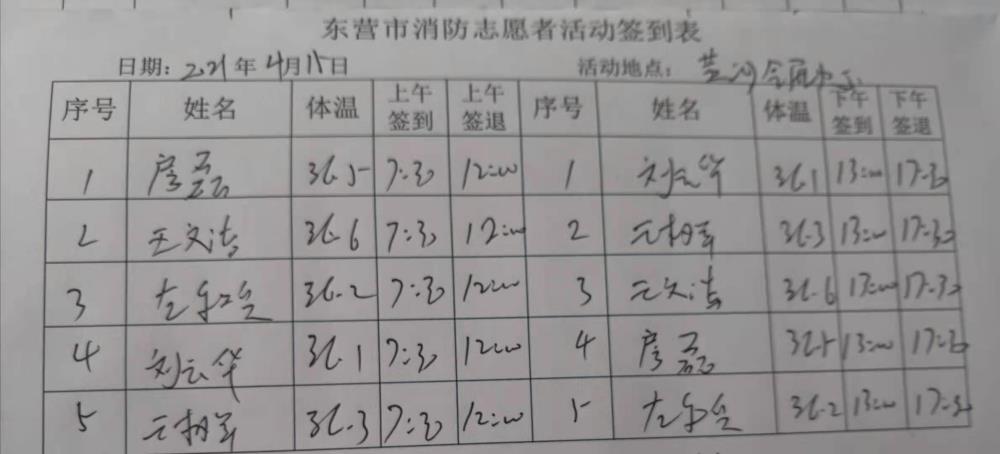 东营市消防志愿者活动签到表
日期：2021年4月15日 活动地点：
序号 姓名 体温 上午签到 上午签退 序号 姓名 体温 下午签到 下午签退
1 房磊 36.5 7:30 12:00 1 刘云华 36.1 13:00 17:30
2 王文浩 36.6 7:30 12:00 2 36.3 13:00 17:30
3 36.2 7:30 12:00 3 王文浩 36.6 13:00 17:30
4 刘云华 36.1 7:30 12:00 4 房磊 36.5 13:00 17:30
5 36.3 7:30 12:00 5 36.2 13:00 17:30